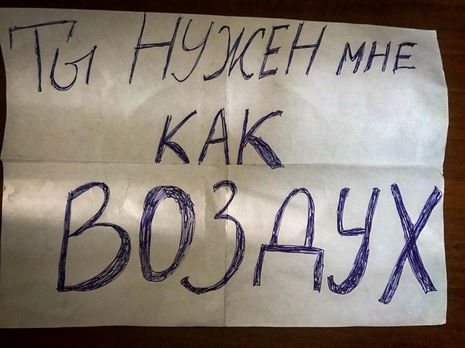 Ты НУЖЕН МНЕ
КАК
ВОЗДУХ